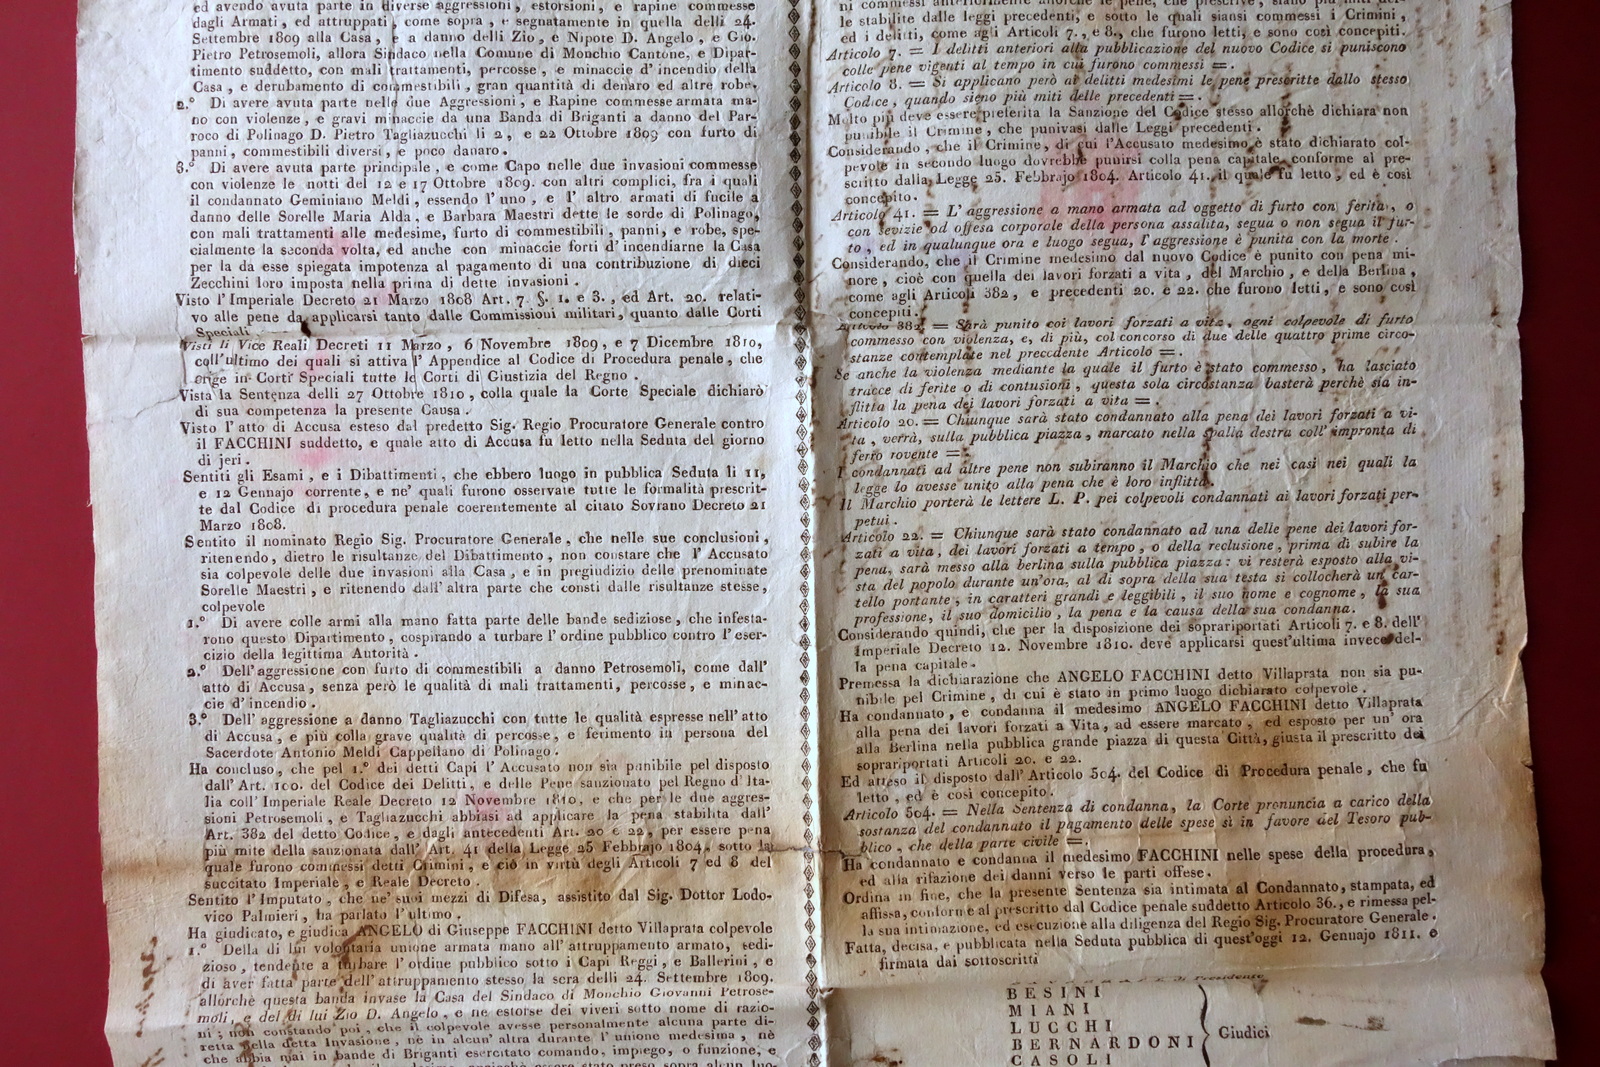 ed avendo avuta parte in diverse aggressioni, estorsioni, e rapine commesse
dagli Armati, ed attruppati, come sopra, e segnatamente in quella delli 24.
Settembre 1809 alla Casa, e a danno delli Zio, e Nipote D. Angelo, e Gio.
Pietro Petrosemoli, allora Sindaco nella Comune di Monchio Cantone, e Dipar-
timento suddetto, con mali trattamenti, percosse, e minaccie d'incendio della
Casa, e derubamento di commestibili, gran quantità di denaro ed altre robe.
2.° Di avere avuta parte nelle due Aggressioni, e Rapine commesse armata ma-
no con violenze, e gravi minaccie da una Banda di Briganti a danno del Par-
roco di Polinago D. Pietro Tagliazucchi li 2, e 22 Ottobre 1809 con furto di
panni, commestibili diversi, e poco danaro.
3.° Di avere avuta parte principale, e come Capo nelle due invasioni commesse
con violenze le notti del 12 e 17 Ottobre 1809. con altri complici, fra i quali
il condannato Geminiano Meldi, essendo l'uno, e l'altro armati di fucile a
danno delle Sorelle Maria Alda, e Barbara Maestri dette le sorde di Polinago,
con mali trattamenti alle medesime, furto di commestibili, panni, e robe, spe-
cialmente la seconda volta, ed anche con minaccie forti d'incendiarne la Casa
per la da esse spiegata impotenza al pagamento di una contribuzione di dieci
Zecchini loro imposta nella prima di dette invasioni.
Visto l'Imperiale Decreto 21 Marzo 1808 Art. 7 §. 1. e 3., ed Art. 20. relati-
vo alle pene da applicarsi tanto dalle Commissioni militari, quanto dalle Corti
Speciali.
Visti li Vice Reali Decreti 11 Marzo, 6 Novembre 1809, e 7 Dicembre 1810,
coll'ultimo dei quali si attiva l'Appendice al Codice di Procedura penale, che
erige in Corti Speciali tutte le Corti di Giustizia del Regno.
Vista la Sentenza delli 27 Ottobre 1810, colla quale la Corte Speciale dichiarò
di sua competenza la presente Causa.
Visto l'atto di Accusa esteso dal predetto Sig. Regio Procuratore Generale contro
il FACCHINI suddetto, e quale atto di Accusa fu letto nella Seduta del giorno
di jeri.
Sentiti gli Esami, e i Dibattimenti, che ebbero luogo in pubblica Seduta li 11,
e 12 Gennajo corrente, e ne' quali furono osservate tutte le formalità prescrit-
te dal Codice di procedura penale coerentemente al citato Sovrano Decreto 21
Marzo 1808.
Sentito il nominato Regio Sig. Procuratore Generale, che nelle sue conclusioni,
ritenendo, dietro le risultanze del Dibattimento, non constare che l'Accusato
sia colpevole delle due invasioni alla Casa, e in pregiudizio delle prenominate
Sorelle Maestri, e ritenendo dall'altra parte che consti dalle risultanze stesse,
colpevole
1.° Di avere colle armi alla mano fatta parte delle bande sediziose, che infesta-
rono questo Dipartimento, cospirando a turbare l'ordine pubblico contro l'eser-
cizio della legittima Autorità.
2.° Dell'aggressione con furto di commestibili a danno Petrosemoli, come dall'
atto di Accusa, senza però le qualità di mali trattamenti, percosse, e minac-
cie d'incendio.
3.° Dell'aggressione a danno Tagliazucchi con tutte le qualità espresse nell'atto
di Accusa, e più colla grave qualità di percosse, e ferimento in persona del
Sacerdote Antonio Meldi Cappellano di Polinago.
Ha concluso, che pel 1.° dei detti Capi l'Accusato non sia punibile pel disposto
dall'Art. 100. del Codice dei Delitti, e delle Pene sanzionato pel Regno d'Ita-
lia coll'Imperiale Reale Decreto 12 Novembre 1810, e che per le due aggres-
sioni Petrosemoli, e Tagliazucchi abbiasi ad applicare la pena stabilita dall'
Art. 382 del detto Codice, e dagli antecedenti Art. 20 e 22, per essere pena
più mite della sanzionata dall'Art. 41 della Legge 25 Febbrajo 1804. sotto la
quale furono commessi detti Crimini, e ciò in virtù degli Articoli 7 ed 8 del
succitato Imperiale, e Reale Decreto.
Sentito l'Imputato, che ne' suoi mezzi di Difesa, assistito dal Sig. Dottor Lodo-
vico Palmieri, ha parlato l'ultimo.
Ha giudicato, e giudica ANGELO di Giuseppe FACCHINI detto Villaprata colpevole
1.° Della di lui volontaria unione armata mano all'attruppamento armato, sedi-
zioso, tendente a turbare l'ordine pubblico sotto i Capi Reggi, e Ballerini, e
di aver fatta parte dell'attiruppamento stesso la sera delli 24. Settembre 1809.
allorchè questa banda invase la Casa del Sindaco di Monchio Giovanni Petrose-
moli, e del di lui Zio D. Angelo, e ne estorse dei viveri sotto nome di razio-
ni; non constando poi, che il colpevole avesse personalmente alcuna parte di-
retta nella detta Invasione, nè in alcun'altra durante l'unione medesima, nè
che abbia mai in bande di Briganti esercitato comando, impiego, o funzione, e
le stabilite dalle leggi precedenti, e sotto le quali siansi commessi i Crimini,
ed i delitti, come agli Articoli 7., e 8., che furono letti, e sono così concepiti.
Articolo 7. = I delitti anteriori alla pubblicazione del nuovo Codice si puniscono
colle pene vigenti al tempo in cui furono commessi =.
Articolo 8. = Si applicano però ai delitti medesimi le pene prescritte dallo stesso
Codice, quando sieno più miti delle precedenti =.
Molto più deve essere preferita la Sanzione del Codice stesso allorchè dichiara non
punibile il Crimine, che punivasi dalle Leggi precedenti.
Considerando, che il Crimine, di cui l'Accusato medesimo è stato dichiarato col-
pevole in secondo luogo dovrebbe punirsi colla pena capitale conforme al pre-
scritto dalla Legge 25. Febbrajo 1804. Articolo 41. il quale fu letto, ed è così
concepito.
Articolo 41. = L'aggressione a mano armata ad oggetto di furto con ferita, o
con sevizie od offesa corporale della persona assalita, segua o non segua il fur-
to, ed in qualunque ora e luogo segua, l'aggressione è punita con la morte.
Considerando, che il Crimine medesimo dal nuovo Codice è punito con pena mi-
nore, cioè con quella dei lavori forzati a vita, del Marchio, e della Berlina,
come agli Articoli 382, e precedenti 20. e 22. che furono letti, e sono così
concepiti.
Articolo 382 = Sarà punito coi lavori forzati a vita, ogni colpevole di furto
commesso con violenza, e, di più, col concorso di due delle quattro prime circo-
stanze contemplate nel precedente Articolo =.
Se anche la violenza mediante la quale il furto è stato commesso, ha lasciato
tracce di ferite o di contusioni, questa sola circostanza basterà perchè sia in-
flitta la pena dei lavori forzati a vita =.
Articolo 20. = Chiunque sarà stato condannato alla pena dei lavori forzati a vi-
ta, verrà, sulla pubblica piazza, marcato nella spalla destra coll'impronta di
ferro rovente =.
I condannati ad altre pene non subiranno il Marchio che nei casi nei quali la
legge lo avesse unito alla pena che è loro inflitta.
Il Marchio porterà le lettere L. P. pei colpevoli condannati ai lavori forzati per-
petui.
Articolo 22. = Chiunque sarà stato condannato ad una delle pene dei lavori for-
zati a vita, dei lavori forzati a tempo, o della reclusione, prima di subire la
pena, sarà messo alla berlina sulla pubblica piazza: vi resterà esposto alla vi-
sta del popolo durante un'ora, al di sopra della sua testa si collocherà un car-
tello portante, in caratteri grandi e leggibili, il suo nome e cognome, la sua
professione, il suo domicilio, la pena e la causa della sua condanna.
Considerando quindi, che per la disposizione dei soprariportati Articoli 7. e 8. dell'
Imperiale Decreto 12. Novembre 1810. deve applicarsi quest'ultima invece del-
la pena capitale.
Premessa la dichiarazione che ANGELO FACCHINI detto Villaprata non sia pu-
nibile pel Crimine, di cui è stato in primo luogo dichiarato colpevole.
Ha condannato, e condanna il medesimo ANGELO FACCHINI detto Villaprata
alla pena dei lavori forzati a Vita, ad essere marcato, ed esposto per un'ora
alla Berlina nella pubblica grande piazza di questa Città, giusta il prescritto dei
soprariportati Articoli 20. e 22.
Ed atteso il disposto dall'Articolo 504. del Codice di Procedura penale, che fu
letto, ed è così concepito.
Articolo 504. = Nella Sentenza di condanna, la Corte pronuncia a carico della
sostanza del condannato il pagamento delle spese sì in favore del Tesoro pub-
blico, che della parte civile =.
Ha condannato e condanna il medesimo FACCHINI nelle spese della procedura,
ed alla rifazione dei danni verso le parti offese.
Ordina in fine, che la presente Sentenza sia intimata al Condannato, stampata, ed
affissa, conforme al prescritto dal Codice penale suddetto Articolo 36., e rimessa pel-
la sua intimazione, ed esecuzione alla diligenza del Regio Sig. Procuratore Generale.
Fatta, decisa, e pubblicata nella Seduta pubblica di quest'oggi 12. Gennajo 1811. e
firmata dai sottoscritti
BESINI
MIANI
LUCCHI
BERNARDONI
CASOLI
Giudici